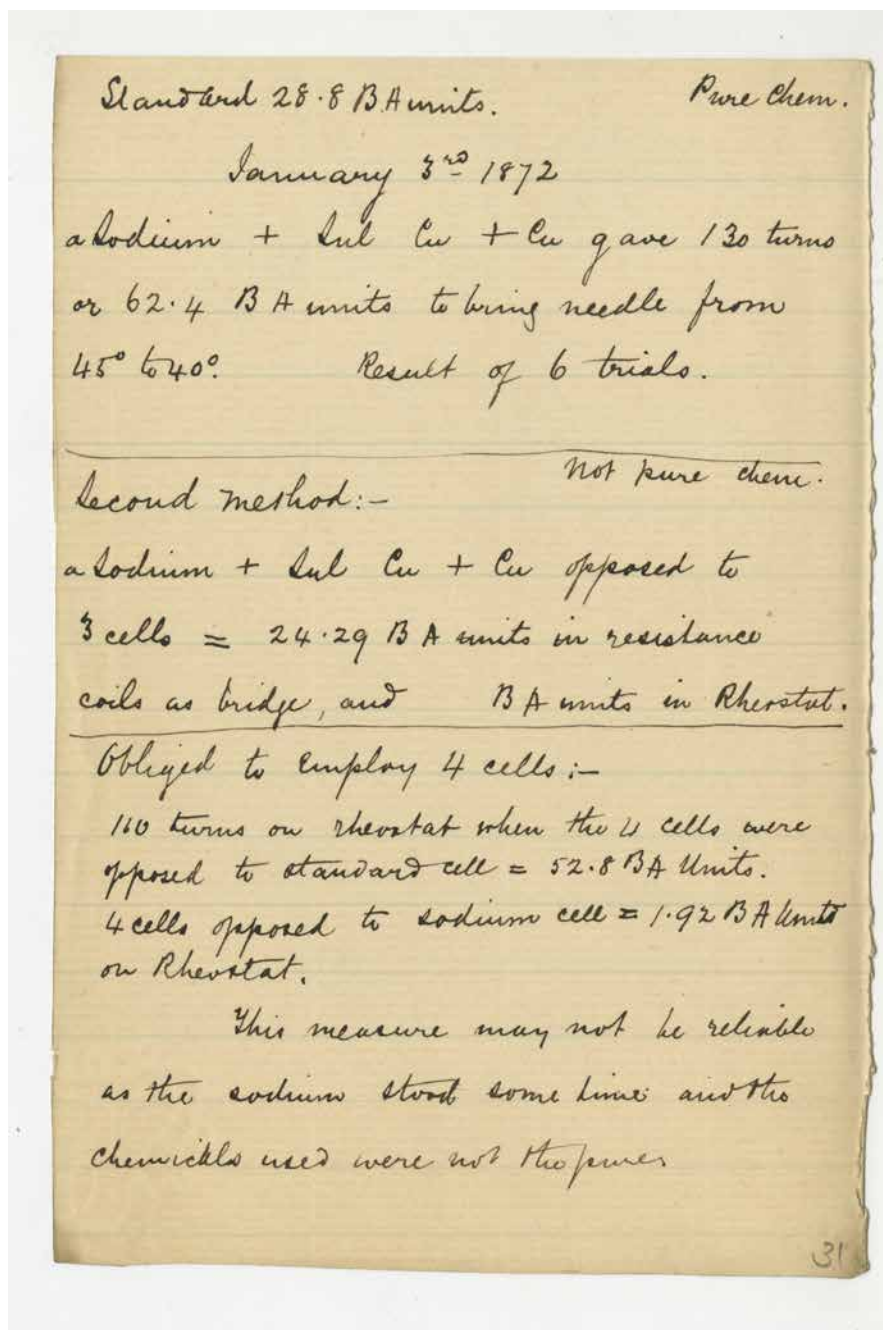 Standard 28.8 B A units. Pure Chem.
January 3rd 1872
a Sodium + Sul Cu + Cu gave 130 turns
or 62.4 B A units to bring needle from
45° to 40°. Result of 6 trials.
Not pure chem.
Second method:-
a Sodium + Sul Cu + Cu opposed to
3 cells = 24.29 B A units in resistance
coils as bridge, and B A units in Rheostat.
Obliged to employ 4 cells:-
110 turns on rheostat when the 4 cells were
opposed to standard cell = 52.8 BA Units.
4 cells opposed to sodium cell = 1.92 B A Units
on Rheostat.
This measure may not be reliable
as the sodium stood some time and the
chemicals used were not the pure
31